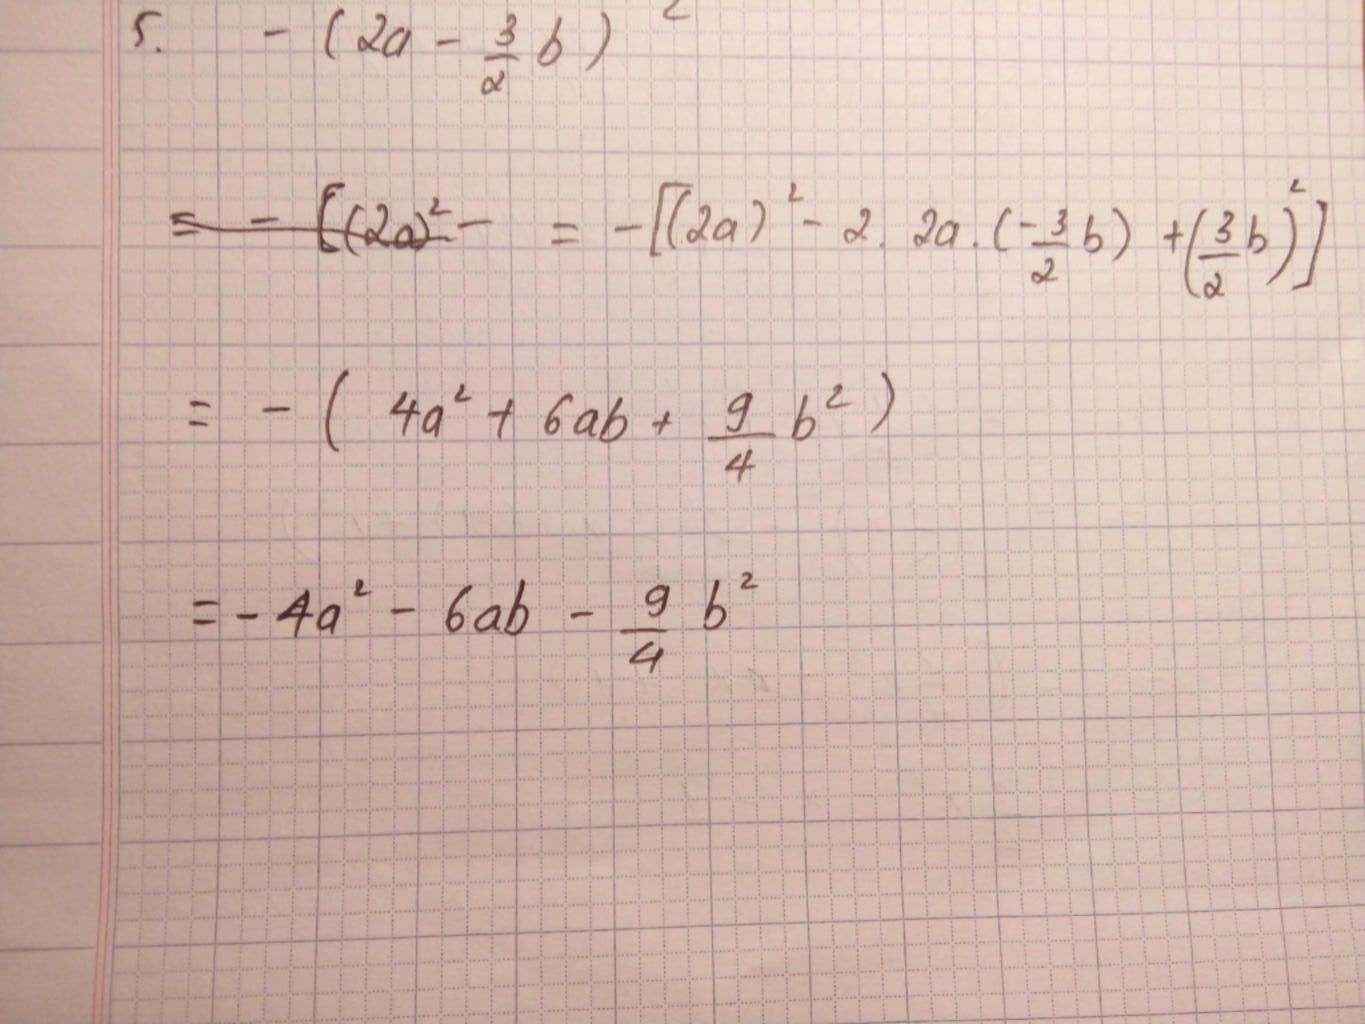 5. - (2a - 3/2 b)²
= - [(2a)² - = -[(2a)² - 2. 2a. (-3/2 b) + (3/2 b)²]
= - ( 4a² + 6ab + 9/4 b² )
= - 4a² - 6ab - 9/4 b²